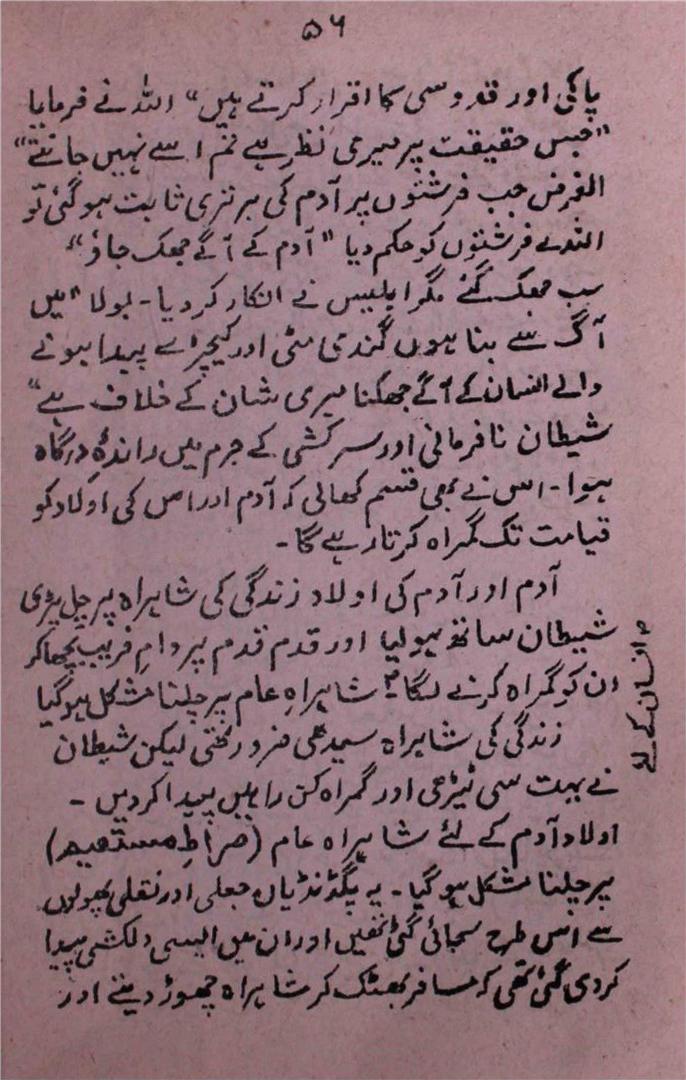 ۵۶
پاکی اور قدوسی کا اقرار کرتے ہیں" اللہ نے فرمایا
"جس حقیقت پر میری نظر ہے تم اسے نہیں جانتے"
الغرض جب فرشتوں پر آدم کی برتری ثابت ہوگئی تو
اللہ نے فرشتوں کو حکم دیا "آدم کے آگے جھک جاؤ"
سب جھک گئے مگر ابلیس نے انکار کر دیا۔ بولا "میں
آگ سے بنا ہوں گندی مٹی اور کیچڑ سے پیدا ہونے
والے انسان کے آگے جھکنا میری شان کے خلاف ہے"
شیطان نافرمانی اور سرکشی کے جرم میں راندۂ درگاہ
ہوا۔ اس نے بھی قسم کھالی کہ آدم اور اس کی اولاد کو
قیامت تک گمراہ کرتا رہے گا۔
آدم اور آدم کی اولاد زندگی کی شاہراہ پر چل پڑی
شیطان ساتھ ہولیا اور قدم قدم پر دامِ فریب بچھا کر
ان کو گمراہ کرنے لگا۔ شاہراہِ عام پر چلنا مشکل ہوگیا
انسان کے لئے
زندگی کی شاہراہ سیدھی ضرور تھی لیکن شیطان
نے بہت سی ٹیڑھی اور گمراہ کن راہیں پیدا کر دیں۔
اولاد آدم کے لئے شاہراہ عام (صراطِ مستقیم)
پر چلنا مشکل ہوگیا۔ یہ پگڈنڈیاں جعلی اور نقلی پھولوں
سے اس طرح سجائی گئی تھیں اور ان میں ایسی دلکشی پیدا
کر دی گئی تھی کہ مسافر بھٹک کر شاہراہ چھوڑ دیتے اور